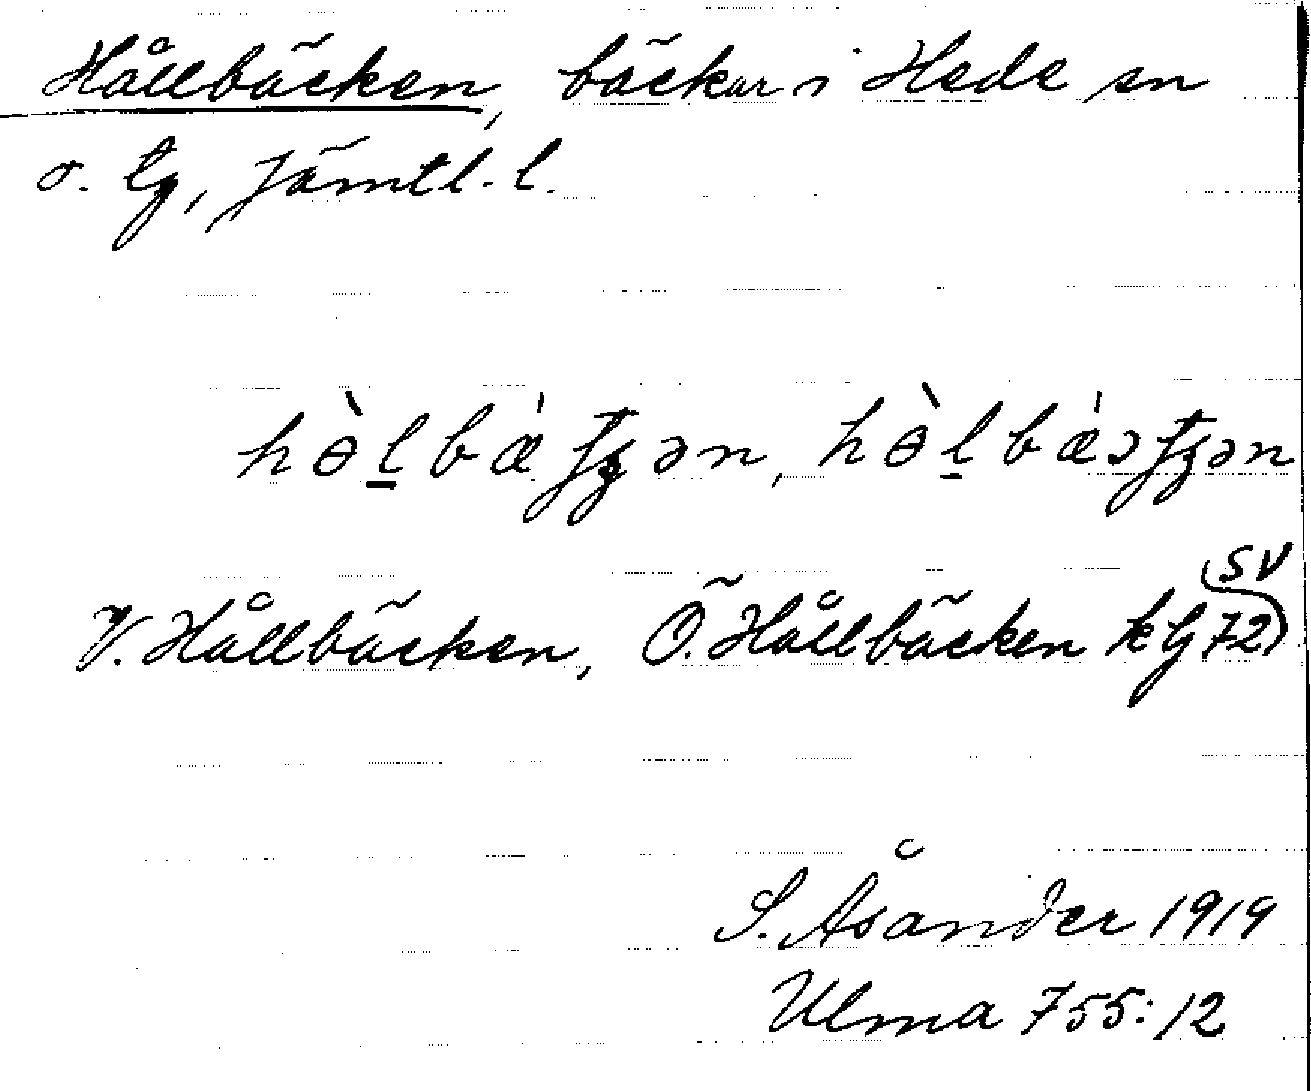 Hållbäcken, bäckar i Hede sn
o. tg, Jämtl. l.
hɵ̀l̠bæ̀ʈʂən, hɵ̀l̠bæ̀əʈʂən
SV
V. Hållbäcken, Ö. Hållbäcken k G 72
S. Åsander 1919
Ulma 755:12